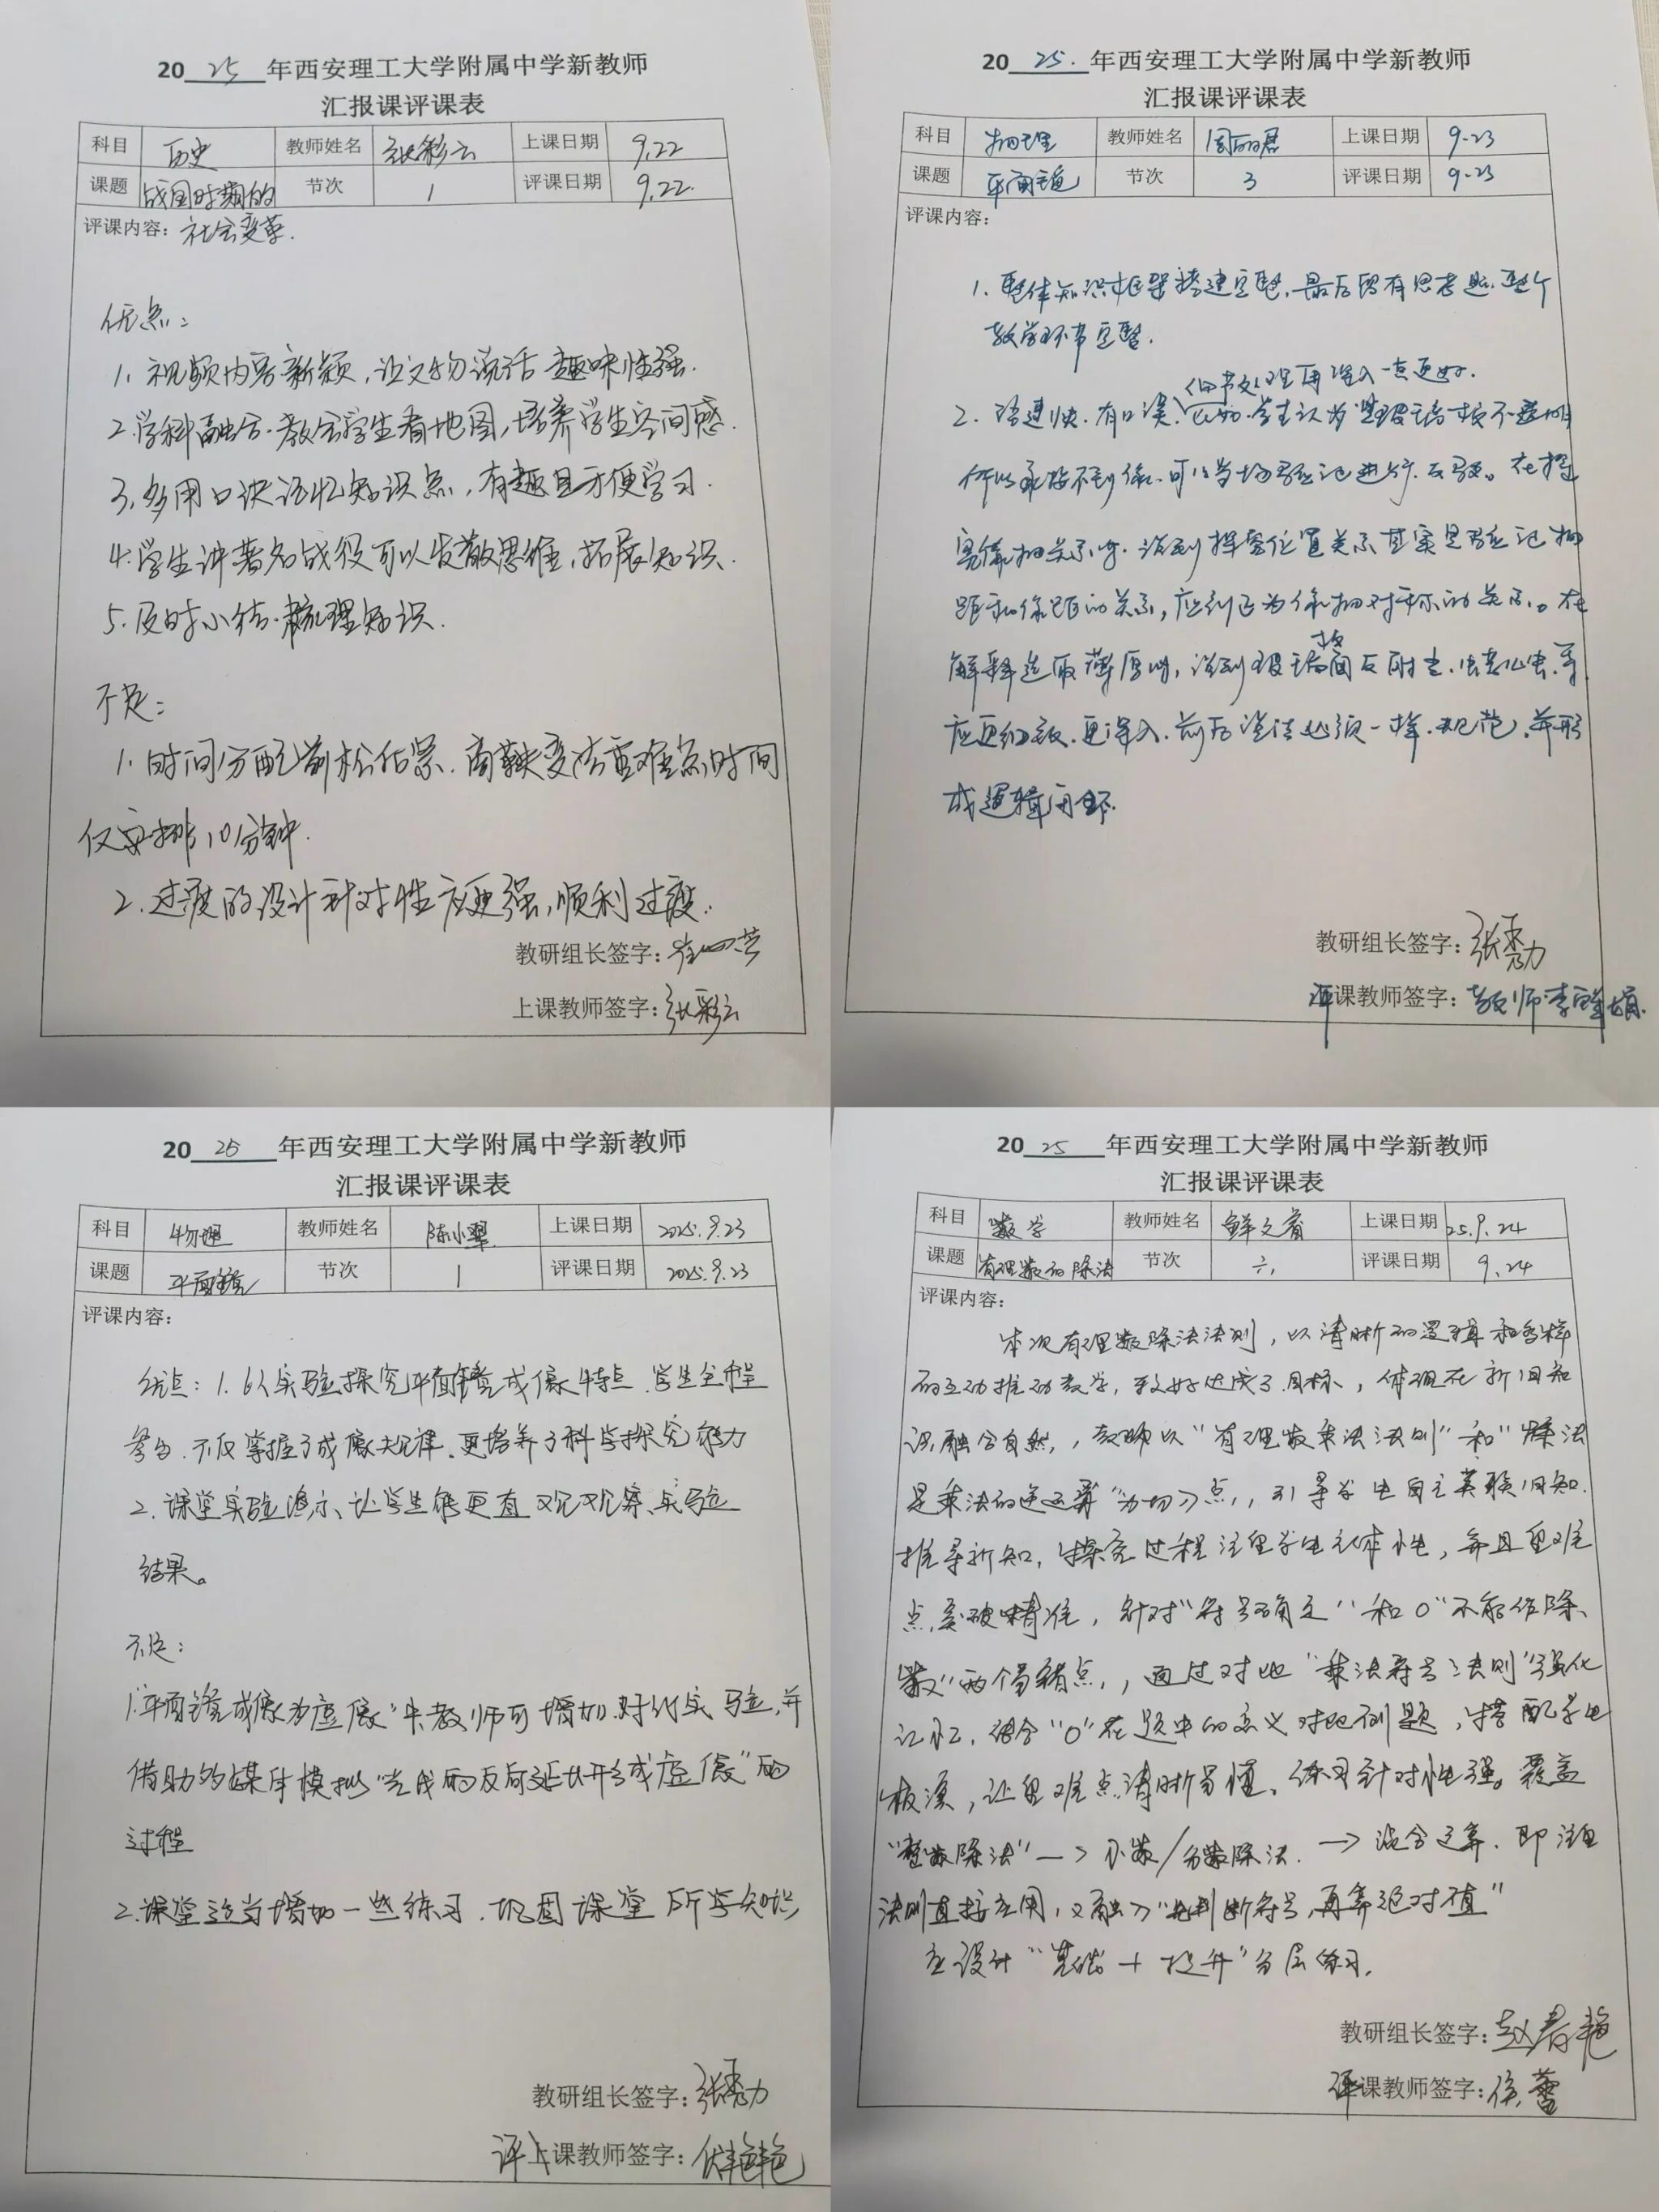 20 25 年西安理工大学附属中学新教师
汇报课评课表
科目 历史 教师姓名 张彩云 上课日期 9.22
课题 战国时期的 节次 1 评课日期 9.22.
评课内容: 社会变革.
优点:
1. 视频内容新颖,让文物说话 趣味性强.
2.学科融合.教会学生看地图,培养学生空间感.
3.多用口诀记忆知识点,有趣且方便学习.
4.学生讲著名战役可以发散思维,拓展知识.
5.及时小结.梳理知识.
不足:
1.时间分配前松后紧.商鞅变法重难点时间
仅安排10分钟.
2.过渡的设计针对性应更强,顺利过渡.
教研组长签字:
上课教师签字:张彩云
20 25. 年西安理工大学附属中学新教师
汇报课评课表
科目 物理 教师姓名 周丽君 上课日期 9.23
课题 平面镜 节次 3 评课日期 9.23
评课内容:
1. 整体知识框架搭建完整,最后留有思考题.整个
教学环节完整.
细节处理再深入一点更好.
2. 语速快.有口误.比如.学生认为是玻璃板不透明
所以承接不到像.可以当场验证进行反驳。在探
究像物关系时.说到探究位置关系其实是验证物
距和像距的关系,应纠正为像物对称的关系。在
解释选取薄厚时,说到玻璃面反射
应更细致.更深入.前后说法必须一样.规范.并形
成逻辑闭环.
教研组长签字:张秀力
评课教师签字:教师李
20 25 年西安理工大学附属中学新教师
汇报课评课表
科目 物理 教师姓名 陈小翠 上课日期 2025.9.23
课题 平面镜 节次 1 评课日期 2025.9.23
评课内容:
优点:1.以实验探究平面镜成像特点.学生全程
参与.不仅掌握了成像规律.更培养了科学探究能力
2.课堂实验演示、让学生能更直观观察实验
结果。
不足:
1."平面镜成像为虚像"中教师可增加对比实验,并
借助多媒体模拟"光线的反向延长形成虚像"的
过程
2.课堂适当增加一些练习.巩固课堂所学知识,
教研组长签字:张秀力
评上课教师签字:艳艳
20 25 年西安理工大学附属中学新教师
汇报课评课表
科目 数学 教师姓名 鲜文睿 上课日期 25.9.24
课题 有理数的除法 节次 六 评课日期 9.24
评课内容:
本次有理数除法法则,以清晰的逻辑和多样
的互动推动教学,较好达成了目标,体现在新旧知
识融合自然,,教师以"有理数乘法法则"和"除法
是乘法的逆运算"为切入点,,引导学生自主关联旧知.
推导新知,探究过程注重学生主体性,并且重难
点突破精准,针对"符号确定"和0"不能作除
数"两个易错点,,通过对比"乘法符号法则"强化
记忆,结合"0"在题中的意义对比例题,搭配学生
板演,让重难点清晰易懂.练习针对性强。覆盖
"整数除法"—>小数/分数除法.—>混合运算.即注重
法则直接应用,又融入"先判断符号,再算绝对值"
应设计"基础+提升"分层练习.
教研组长签字:赵春艳
评课教师签字:侯蕾